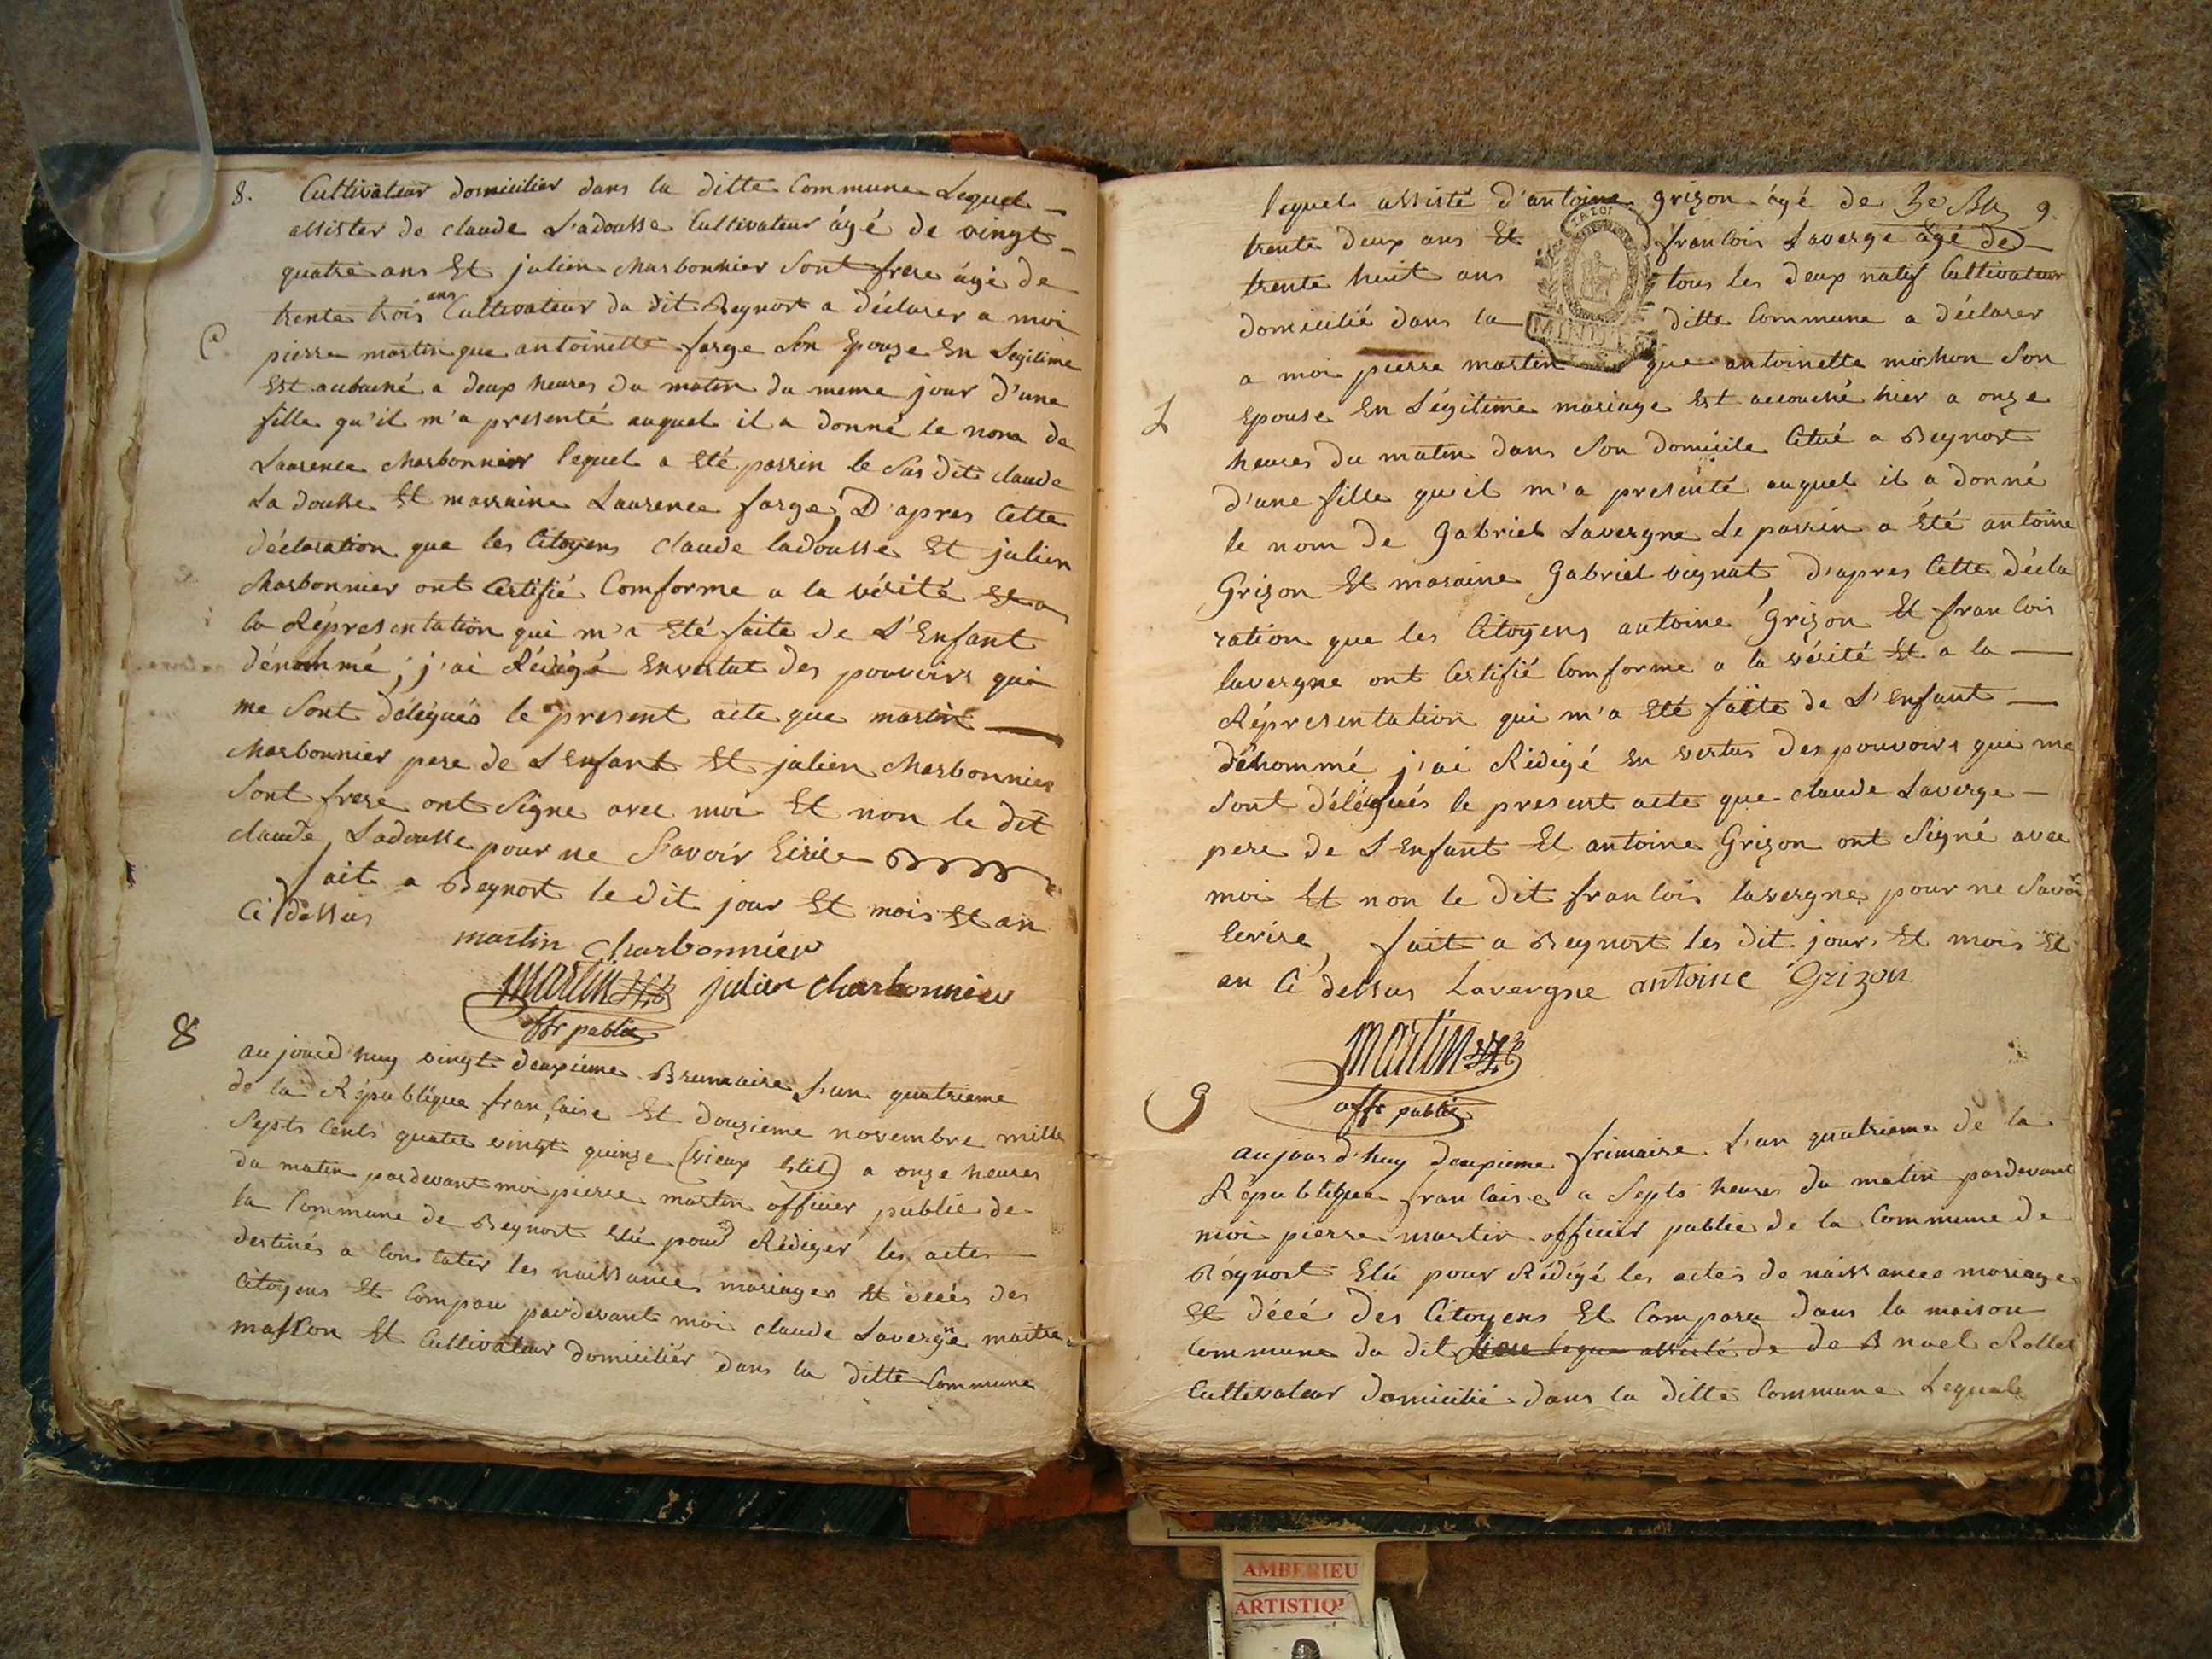 8. Cultivateur domicilier dans la ditte Commune Lequel
assister de claude L'adousse Cultivateur âgé de vingt
quatre ans Et julien charbonnier sont frere âgé de
trente trois ans Cultivateur du dit Beynost a déclarer a moi
C
pierre martin que antoinette farge son Epouze En Legitime
Est a deux heures du matin du meme jour d'une
fille qu'il m'a presenté auquel il a donné le nom de
Laurence charbonnier lequel a Eté parrin le Sus dit claude
Ladousse Et marraine Laurence farge, D'apres Cette
déclaration que les Citoyens claude ladousse Et julien
charbonnier ont Certifié Comforme a la vérité Et a
la Répresentation qui m'a Eté faite de L'Enfant
dénommé; j'ai Rédigé En vertut des pouvoirs qui
me Sont délégués le present acte que martin
charbonnier pere de L'Enfant Et julien charbonnier
Sont frere ont Signe avec moi Et non le dit
claude Ladousse pour ne Savoir Ecrire
fait a Beynost le dit jour Et mois Et an
Ci dessus
martin charbonnier
martin julien charbonnier
offr public
8
aujourd'huy vingt deuxieme Brumaire L'an quatrieme
de la République française Et douzieme novembre mille
Septs Cents quatre vingt quinze (vieux Stil) a onze heures
du matin pardevant moi pierre martin officier public de
la Commune de Beynost Elû pour Rédiger les actes
destinés a Constater les naissance mariages Et décés des
Citoyens Et Comparu pardevant moi claude Lavergne maitre
masson Et Cultivateur domiciliér dans la ditte Commune
lequel assisté d'antoine grizon âgé de 9.
trente deux ans Et francois Laverge âgé de
trente huit ans tous les deux natif Cultivateur
domicilié dans la ditte Commune a déclarer
LA LOI
a moi pierre martin que antoinette michon Son
L
Epouse En Légitime mariage Est accouché hier a onze
heures du matin dans Son domicile Citué a Beynost
d'une fille que il m'a presenté auquel il a donné
le nom de Gabriel Lavergne Le parrin a Été antoine
Grizon Et maraine Gabriel vignat, D'apres Cette décla
ration que les Citoyens antoine Grizon Et francois
lavergne ont Certifié Comforme a la vérité Et a la
Répresentation qui m'a Eté faite de L'Enfant
dénommé j'ai Rédigé En vertus des pouvoirs qui me
Sont délégués le present acte que claude Laverge
pere de L'Enfant Et antoine Grizon ont Signé avec
moi Et non le dit francois lavergne pour ne Savoir
Ecrire, fait a Beynost les dit jour, Et mois Et
an Ci dessus Lavergne antoine Grizon
martin
offr public
9
aujourd'huy deuxieme frimaire L'an quatrieme de la
République francaise a Septs heures du matin pardevant
moi pierre martin officier public de la Commune de
Beynost Elû pour Rédigé les actes de naissances mariage
Et décé des Citoyens Et Comparu dans la maison
Commune du dit lieu lequel assisté de de B noel Rollet
Cultivateur domicilié dans la ditte Commune Lequel
AMBERIEU
ARTISTIQ